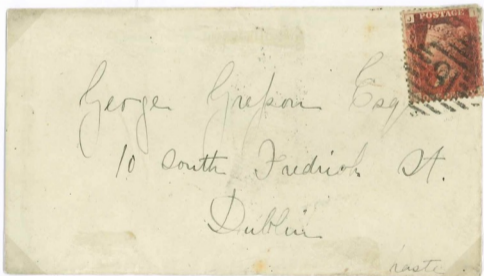 POSTAGE
George Gresson Esq
10 South Fredrick St.
Dublin